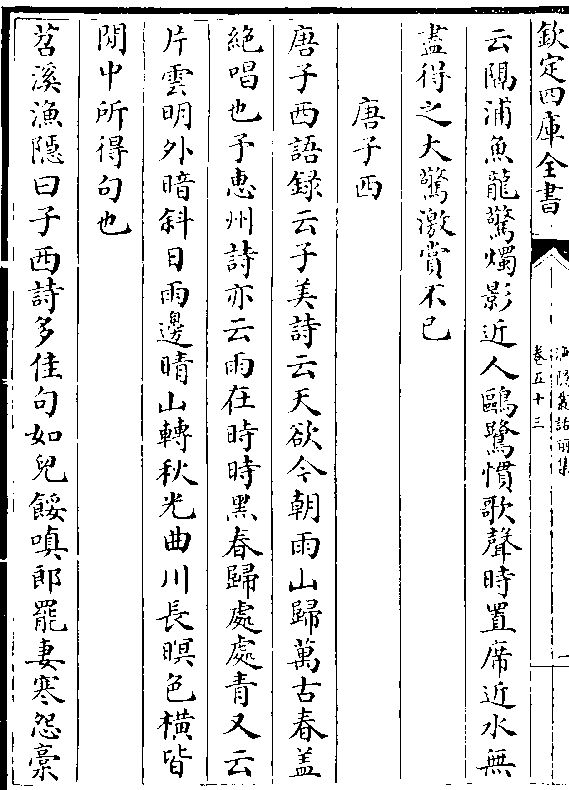 欽定四庫全書
漁隱叢話前集
卷五十三
云隅浦魚龍驚燭影近人鷗鷺慣歌聲時置席近水無
盡得之大驚激賞不已
唐子西
唐子西語録云子美詩云天欲今朝雨山歸萬古春盖
絶唱也予惠州詩亦云雨在時時黑春歸處處青又云
片雲明外暗斜日雨邊晴山轉秋光曲川長暝色横皆
閒中所得句也
苕溪漁隱曰子西詩多佳句如兒餒嗔郎罷妻寒怨藁